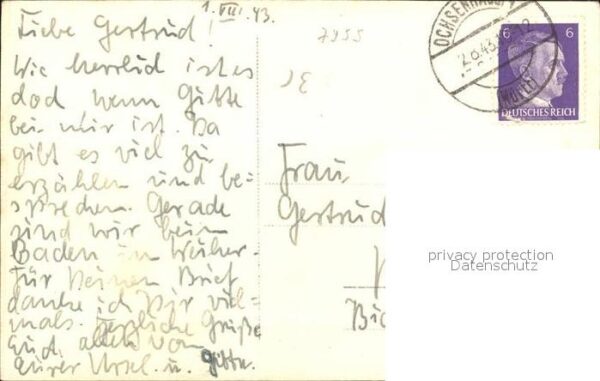 1. VIII. 43.
Liebe Gertrud!
Wie herrlich ist es
doch wenn Gitte
bei mir ist. Da
gibt es viel zu
erzählen und be-
sprechen. Gerade
sind wir beim
Baden im Weiher.
Für Deinen Brief
danke ich Dir viel-
mals. Herzliche Grüße
Euch allen von
Eurer Ursel. u. Gitte.
7955
Frau
Gertrud
OCHSENHAUSEN
2.8.43
(WÜRTT)
6 6
DEUTSCHES REICH
privacy protection
Datenschutz